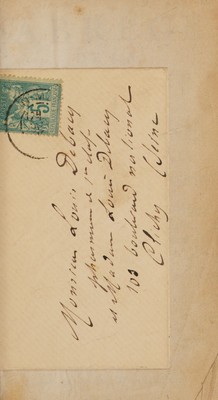 Monsieur Louis Delacy
pharmacien de 1re classe
et Madame Louis Delacy
100 boulevard national
Clichy Seine